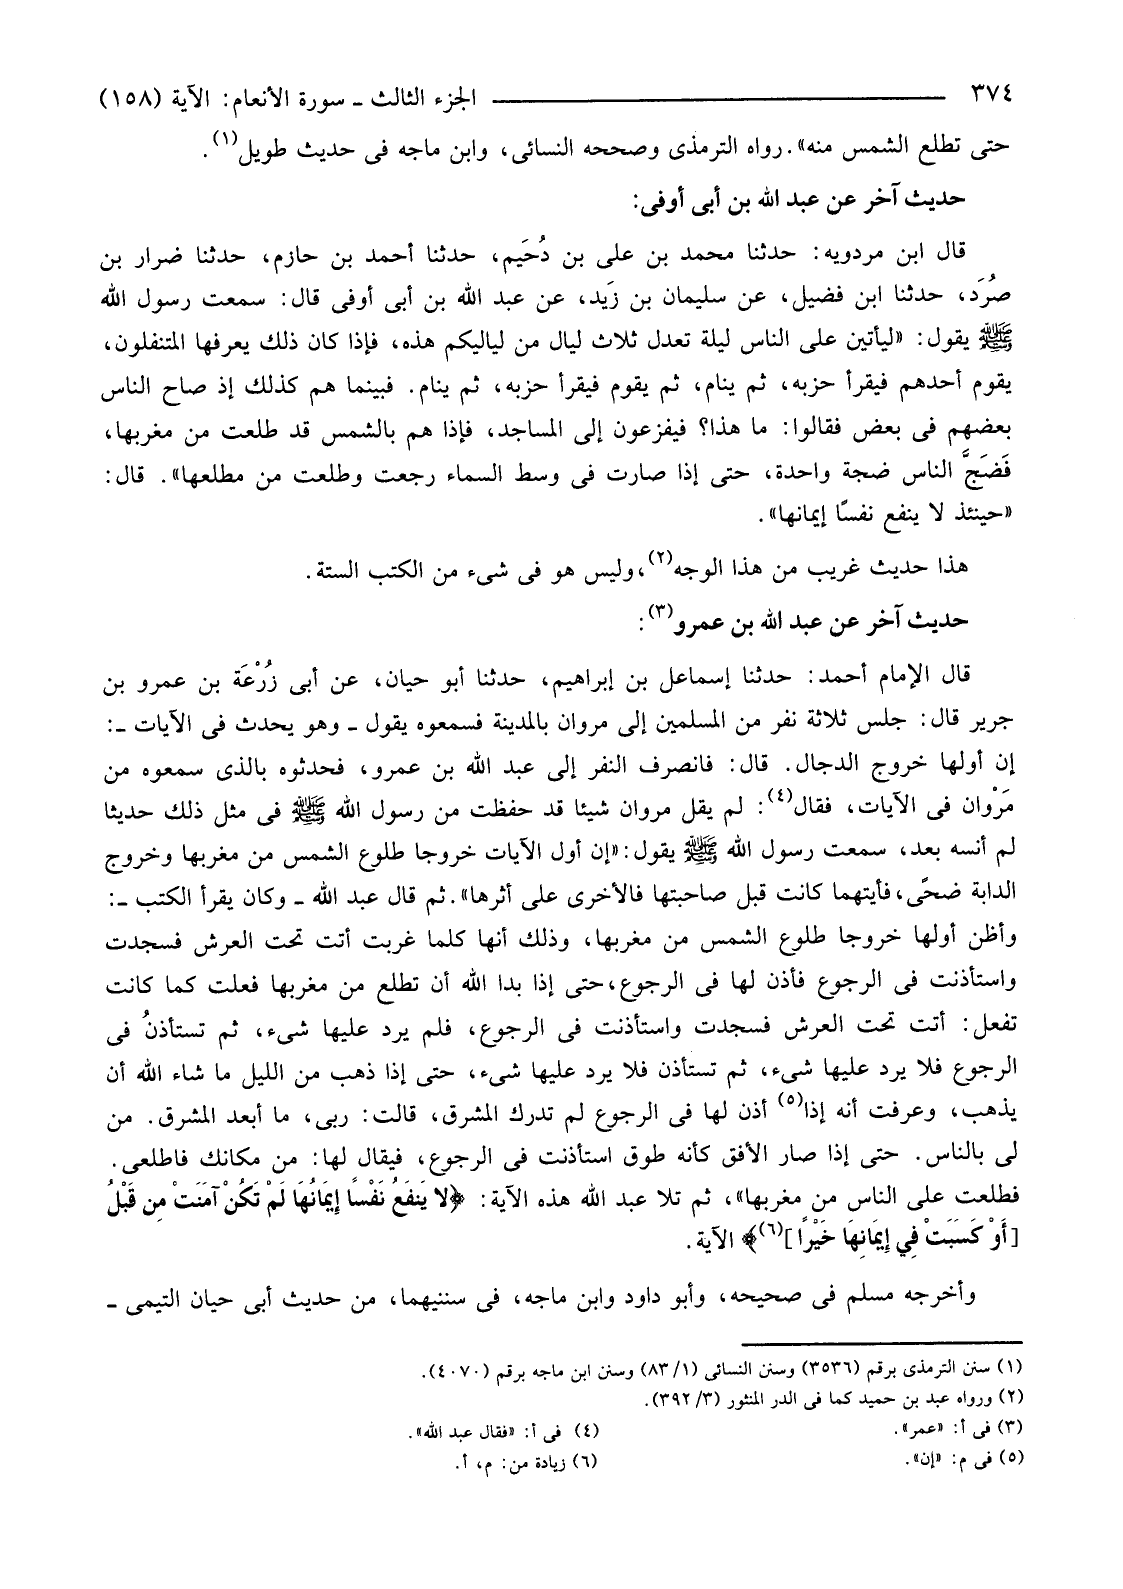 ٣٧٤ ــــــــــ الجزء الثالث ـ سورة الأنعام: الآية (١٥٨)
حتى تطلع الشمس منه». رواه الترمذى وصححه النسائى، وابن ماجه فى حديث طويل(١).
حديث آخر عن عبد الله بن أبى أوفى:
قال ابن مردويه: حدثنا محمد بن على بن دُحَيم، حدثنا أحمد بن حازم، حدثنا ضرار بن
صُرَد، حدثنا ابن فضيل، عن سليمان بن زَيد، عن عبد الله بن أبى أوفى قال: سمعت رسول الله
ﷺ يقول: «ليأتين على الناس ليلة تعدل ثلاث ليال من لياليكم هذه، فإذا كان ذلك يعرفها المتنفلون،
يقوم أحدهم فيقرأ حزبه، ثم ينام، ثم يقوم فيقرأ حزبه، ثم ينام. فبينما هم كذلك إذ صاح الناس
بعضهم فى بعض فقالوا: ما هذا؟ فيفزعون إلى المساجد، فإذا هم بالشمس قد طلعت من مغربها،
فَضَجَّ الناس ضجة واحدة، حتى إذا صارت فى وسط السماء رجعت وطلعت من مطلعها». قال:
«حينئذ لا ينفع نفسًا إيمانها».
هذا حديث غريب من هذا الوجه(٢)، وليس هو فى شىء من الكتب الستة.
حديث آخر عن عبد الله بن عمرو(٣):
قال الإمام أحمد: حدثنا إسماعل بن إبراهيم، حدثنا أبو حيان، عن أبى زُرْعَة بن عمرو بن
جرير قال: جلس ثلاثة نفر من المسلمين إلى مروان بالمدينة فسمعوه يقول ـ وهو يحدث فى الآيات ـ:
إن أولها خروج الدجال. قال: فانصرف النفر إلى عبد الله بن عمرو، فحدثوه بالذى سمعوه من
مَرْوان فى الآيات، فقال(٤): لم يقل مروان شيئا قد حفظت من رسول الله ﷺ فى مثل ذلك حديثا
لم أنسه بعد، سمعت رسول الله ﷺ يقول: «إن أول الآيات خروجا طلوع الشمس من مغربها وخروج
الدابة ضحًى، فأيتهما كانت قبل صاحبتها فالأخرى على أثرها». ثم قال عبد الله ـ وكان يقرأ الكتب ـ:
وأظن أولها خروجا طلوع الشمس من مغربها، وذلك أنها كلما غربت أتت تحت العرش فسجدت
واستأذنت فى الرجوع فأذن لها فى الرجوع، حتى إذا بدا الله أن تطلع من مغربها فعلت كما كانت
تفعل: أتت تحت العرش فسجدت واستأذنت فى الرجوع، فلم يرد عليها شىء، ثم تستأذنُ فى
الرجوع فلا يرد عليها شىء، ثم تستأذن فلا يرد عليها شىء، حتى إذا ذهب من الليل ما شاء الله أن
يذهب، وعرفت أنه إذا(٥) أذن لها فى الرجوع لم تدرك المشرق، قالت: ربى، ما أبعد المشرق. من
لى بالناس. حتى إذا صار الأفق كأنه طوق استأذنت فى الرجوع، فيقال لها: من مكانك فاطلعى.
فطلعت على الناس من مغربها»، ثم تلا عبد الله هذه الآية: ﴿لا يَنفَعُ نَفْسًا إِيمَانُهَا لَمْ تَكُنْ آمَنَتْ مِن قَبْلُ
[أَوْ كَسَبَتْ فِي إِيمَانِهَا خَيْرًا](٦)﴾ الآية.
وأخرجه مسلم فى صحيحه، وأبو داود وابن ماجه، فى سننيهما، من حديث أبى حيان التيمى ـ
(١) سنن الترمذى برقم (٣٥٣٦) وسنن النسائى (٨٣/١) وسنن ابن ماجه برقم (٤٠٧٠).
(٢) ورواه عبد بن حميد كما فى الدر المنثور (٣٩٢/٣).
(٣) فى أ: «عمر». (٤) فى أ: «فقال عبد الله».
(٥) فى م: «إن». (٦) زيادة من: م، أ.